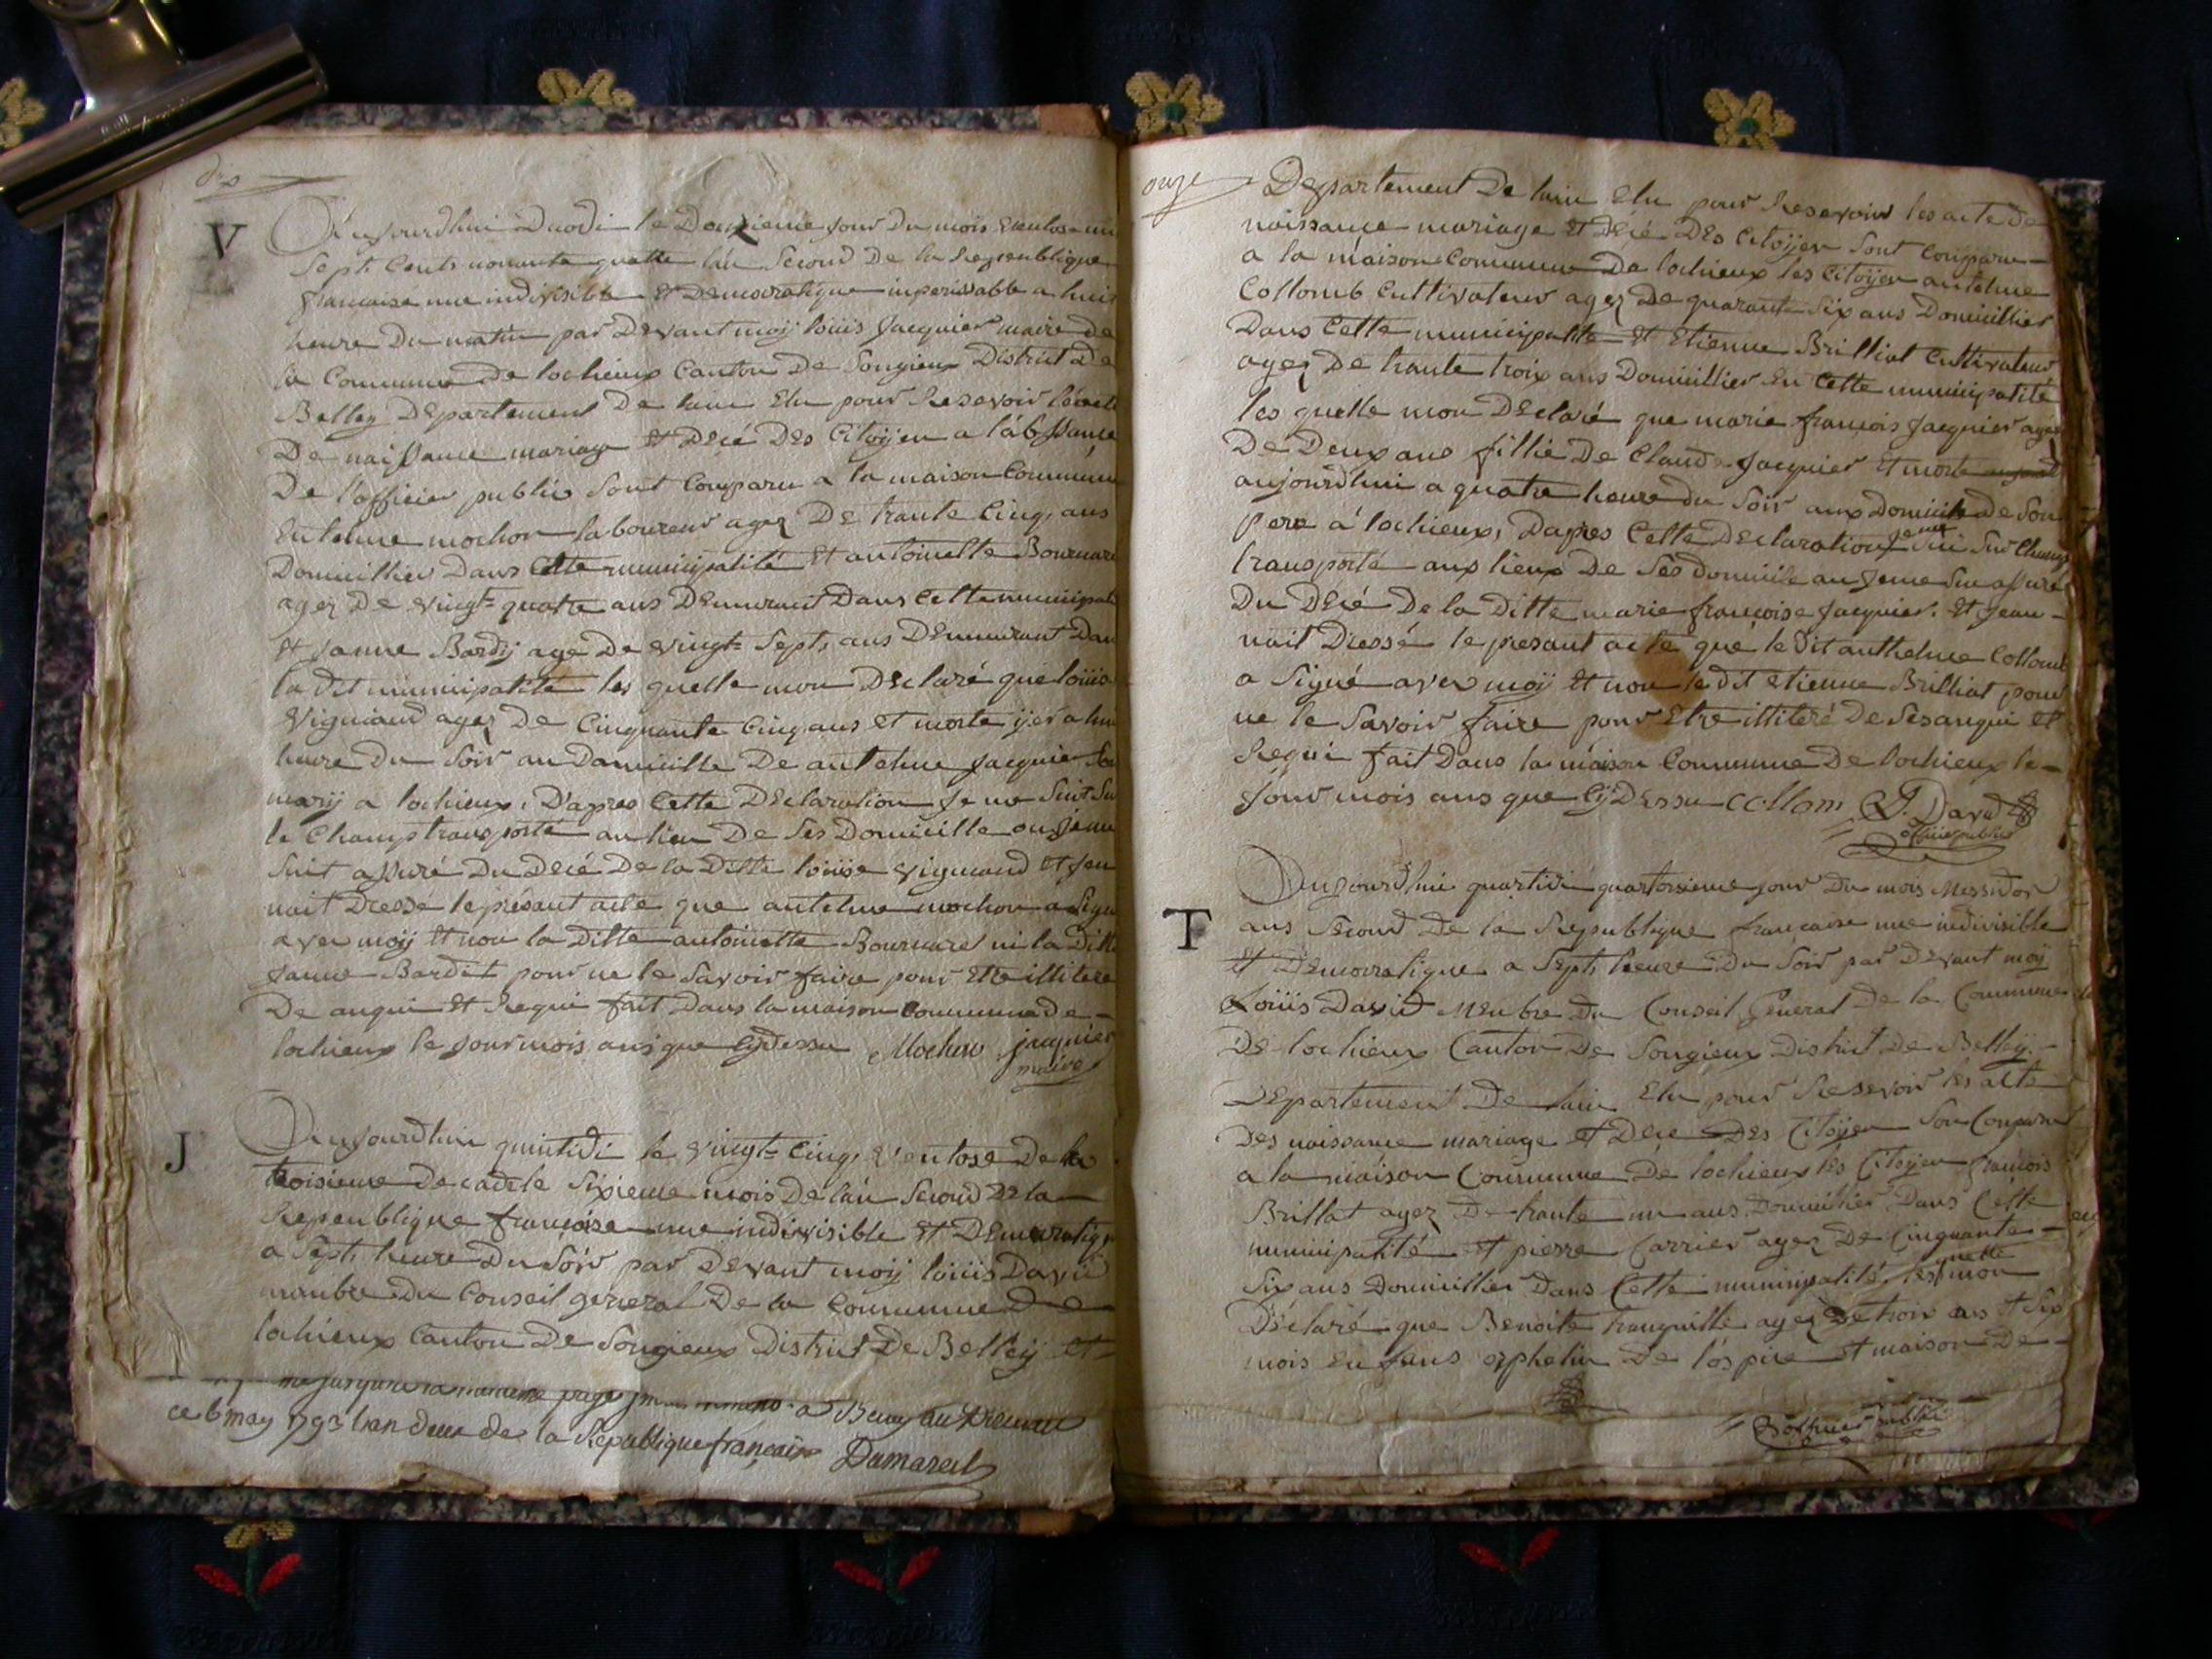 dis
V
Aujourdhui Duodi le Douzieme jour Du mois Ventose mil
Sept Cents nonante quatre l'an Second De la Republique
francaise une indivisible et Democratique imperissable a huit
heure Du matin par Devant moÿ loüis Jacquier maire de
la Commune De lochieux Canton De Songieux District De
Belley Departement De lain Elu pour Resevoir les acte
De naissance mariage et Decé Des Citoÿen a l'abssance
De l'officier public sont Comparu a la maison Commune
Entelme mochon laboureur agez De trante Cinq ans
Domicillier Dans Cette municipalité et antoinette Bournard
agez De vingt-quatre ans Demeurant Dans Cette municipali
et Janne Bardy agé De vingt-Sept ans Demeurant Dan
la Dit municipalité les quelle mon Declaré que loüise
Vigniand agez De Cinquante Cinq ans et morte ijer a hui
heure Du Soir au Domicille De antelme Jacquier Son
marij a lochieux ; D'apres Cette Declaration Je me Suit Su
le Champ transporté au lieu De Ses Domicille ou Je me
Suit assuré Du Decé De la Ditte loüise Vigniand et J'en
nait Dressé le présant acte que antelme mochon a Signe
avec moÿ et non la Ditte antoinette Bournard ni la Ditte
Janne Bardit pour ne le Savoir faire pour Etre illiteré
De anqui et Requi fait Dans la maison Commune de
lochieux le Jour mois ans que Cydessu Mochon jacquier
maire
J
Aujourdhui quintidi le vingt-Cinq Ventose De la
troisieme Decade le Sixieme mois De l'an Second De la
Republique françoise une indivisible et Democratiqu
a Sept heure Du Soir par Devant moÿ loüis David
manbre Du Conseil general De la Commune De
lochieux Canton De Songieux District De Belleÿ et
page
ce 6 may 1793 l'an deux de la Republique françoise Dumarest
onze
Departement De lain Elu pour Resevoir les acte de
naissance mariage et Décé Des Citoÿen Sont Comparu
a la maison Commune De lochieux les Citoÿen antelme
Collomb Cultivateur agez De quarante Six ans Domicillier
Dans Cette municipalité et Etienne Brilliat Cultivateur
agez De trante trois ans Domicillier En Cette municipalité
les quelle mon Declaré que marie françois Jacquier agez
De Deux ans fillie De Claude Jacquier et morte
aujourdhui a quatre heure du Soir aux Domicile De Son
pere a lochieux, Dapres Cette Declaration Je me Sui Sur le Champ
transporté aux lieux De Ses domicile au Jeme Sue assuré
Du Décé De la Ditte marie françoise Jacquier. et Jean
nait Dressé le presant acte que le Dit anthelme Collomb
a Signé avec moÿ et non le dit etienne Brilliat pour
ne le Savoir faire pour Etre illiteré De Sesanqui et
Requi fait Dans la maison Commune De lochieux le
Jour mois ans que Cÿ Dessu Collom L. David
officier public
T
Aujourdhui quartidi quartorsieme jour Du mois Messidor
ans Second De la Republique francaise une indivisible
et Democratique a Sept heure Du Soir par Devant moÿ
Loüis David Menbre Du Conseil General De la Commune
De lochieux Canton De Songieux District De Belleÿ
Departement De lain Elu pour Resevoir les acte
Des naissance mariage et Décé Des Citoÿen Son Comparu
a la maison Commune De lochieux les Citoÿen francois
Brillat agez De trante un ans Domicilier Dans Cette
municipalité et pierre Carrier agez De Cinquante
Six ans Domicillier Dans Cette municipalité, les quelle mon
Déclaré que Benoite tranquille agez De trois ans et Six
mois Enfans orphelin De l'ospice et maison De
officier public